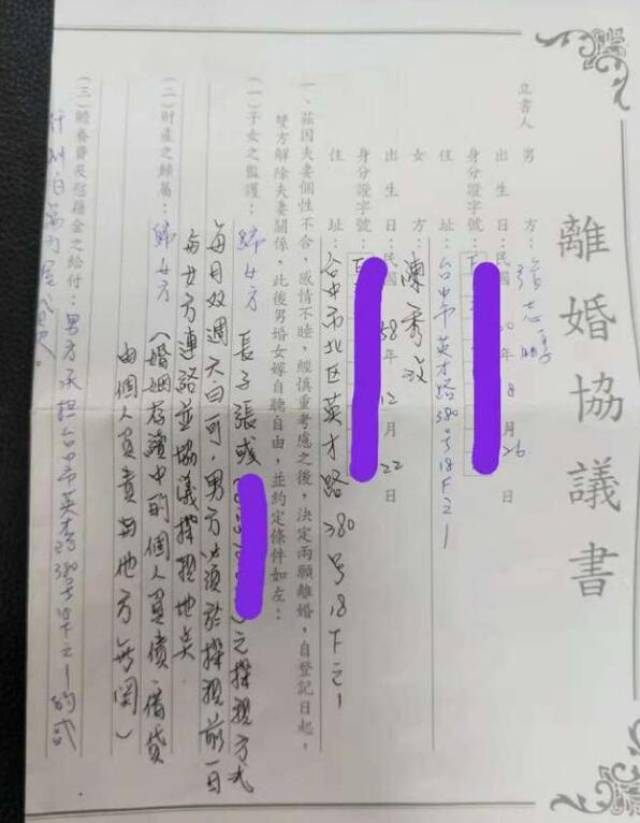 離婚協議書
立書人 男 方：張志
出生日：民國 年 8 月 26 日
身分證字號：
住 址：台中市英才路380号18F之1
女 方：陳秀
出生日：民國 58 年 12 月 22 日
身分證字號：
住 址：台中市北区英才路380号18F之1
一、茲因夫妻個性不合，感情不睦，經慎重考慮之後，決定兩願離婚，自登記日起，
雙方解除夫妻關係，此後男婚女嫁自聽自由，並約定條件如左：
(一)子女之監護：歸女方 長子張彧 之探視方式
每月双週天白可，男方必須於探視前一日
與女方連絡並協議探視地点
(二)財產之歸屬：歸女方（婚姻存續中的個人負債、借貸
由個人負責與他方無関）
(三)贍養費及慰藉金之給付：男方承担台中市英才路380号18F之1的